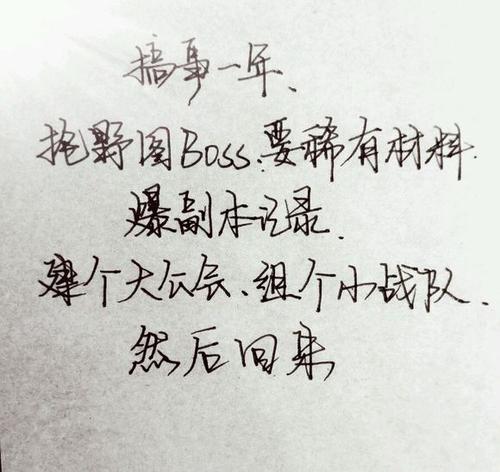 搞事一年、
抢野图Boss.要稀有材料.
爆副本记录.
建个大公会、组个小战队.
然后回来